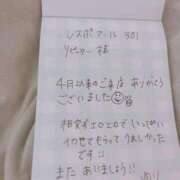 レスポアール 301
リピーター様
4月以来のご来店 ありがとう
ございました
相変わらずエロエロで いっぱい
イカせてもらって うれしかった
です!!
また あいましょう!!